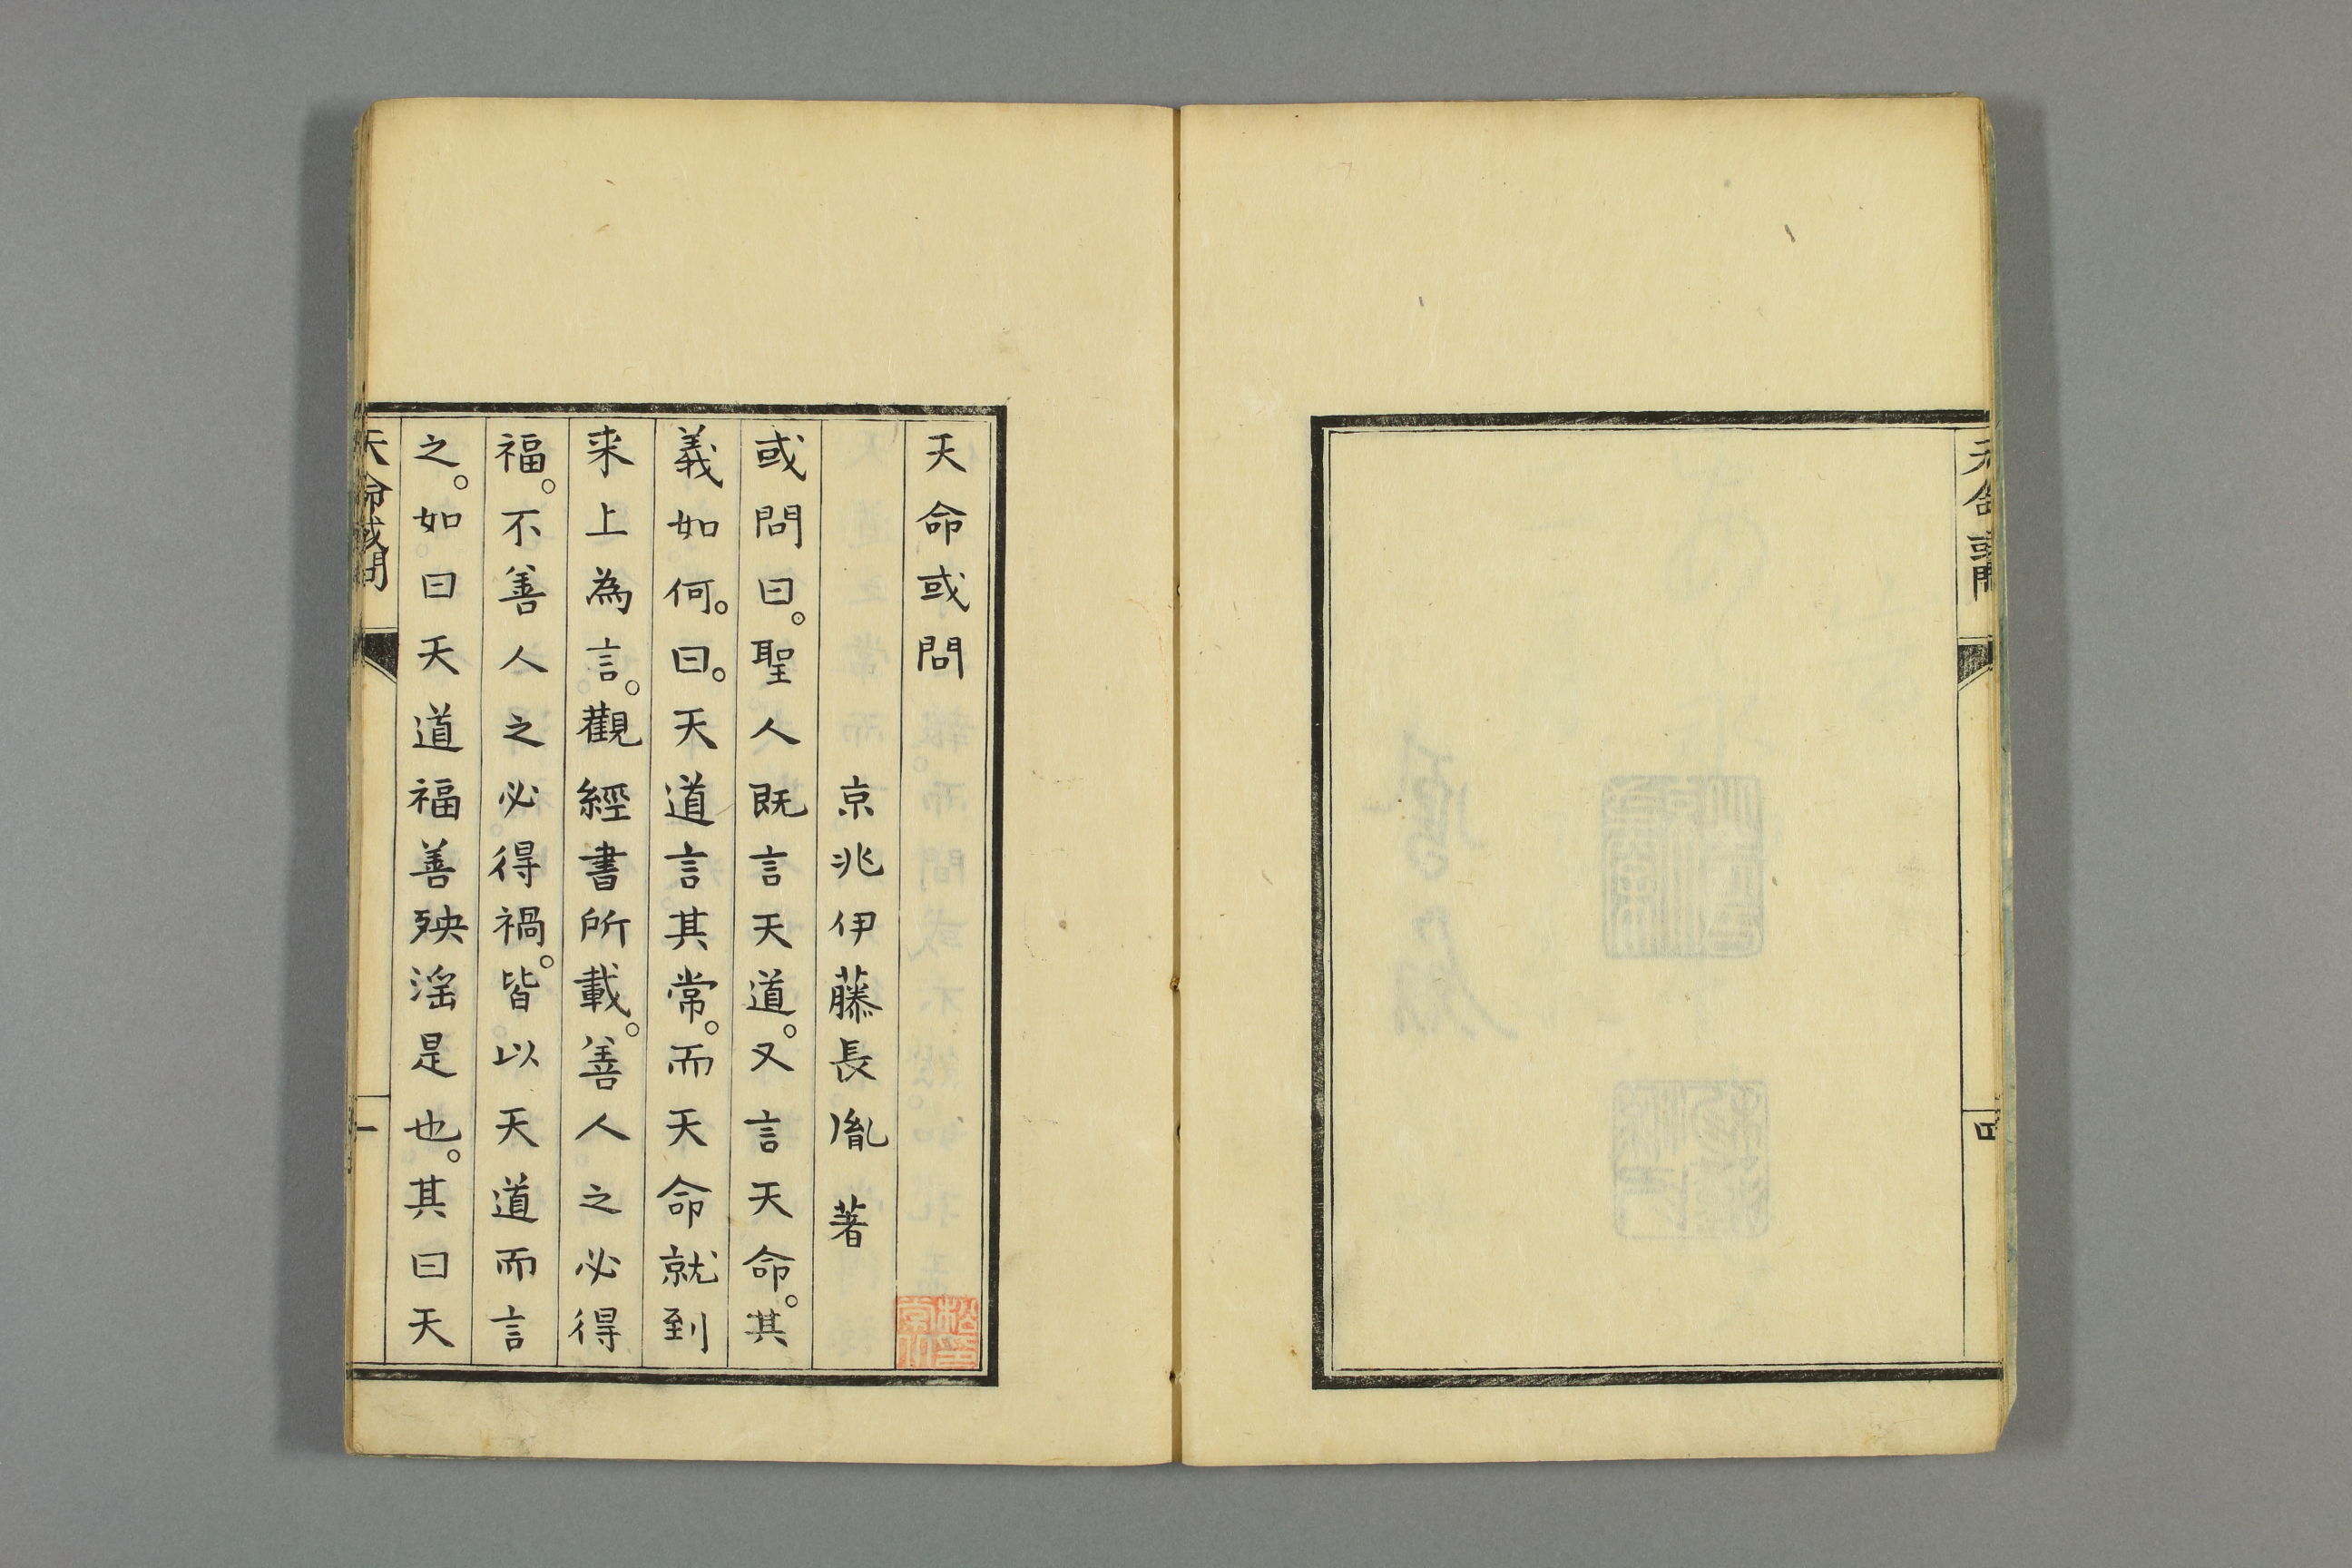 天命或問
四
天命或問
京兆伊藤長胤 著
或問曰。聖人既言天道。又言天命。其
義如何。曰。天道言其常。而天命就到
来上為言。觀經書所載。善人之必得
福。不善人之必得禍。皆以天道而言
之。如曰天道福善殃淫是也。其曰天
天命或問
一